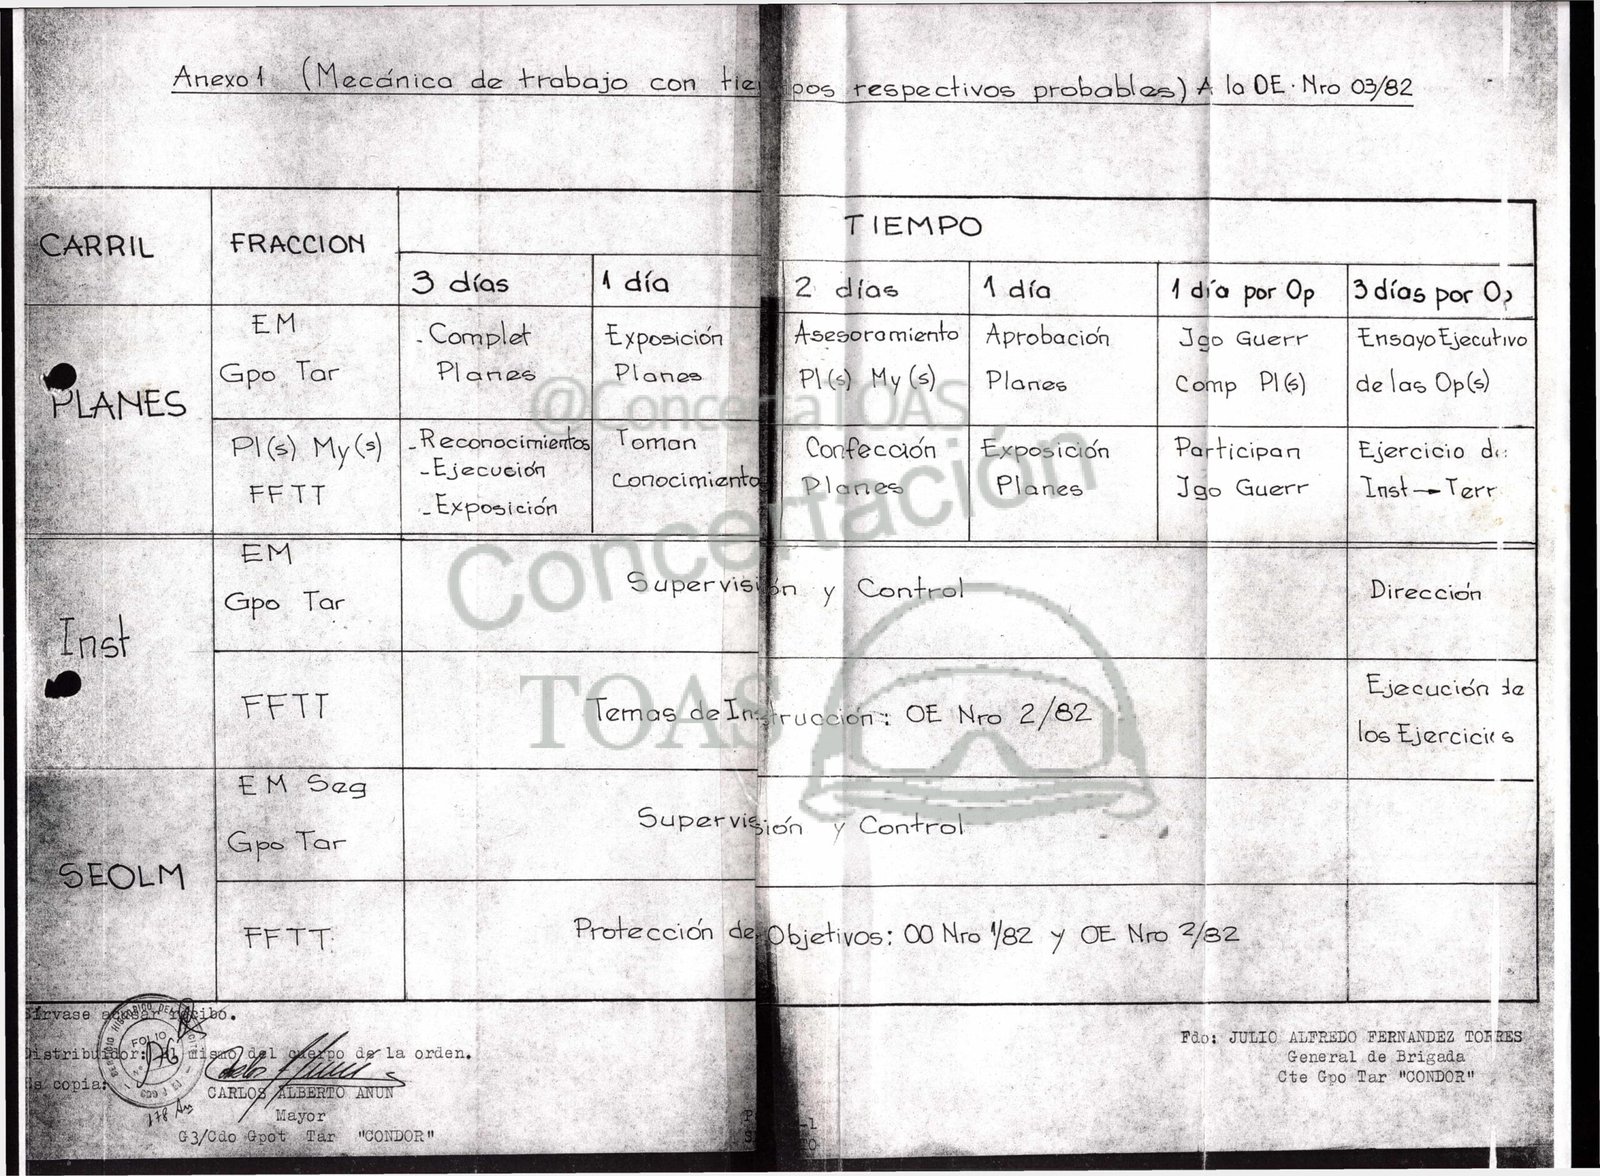 Anexo 1 (Mecánica de trabajo con tiempos respectivos probables) A la OE. Nro 03/82
CARRIL
FRACCION
TIEMPO
3 días
1 día
2 días
1 día
1 día por Op
3 días por Op
PLANES
EM
Gpo Tar
- Complet
Planes
Exposición
Planes
Asesoramiento
Pl(s) My(s)
Aprobación
Planes
Jgo Guerr
Comp Pl(s)
Ensayo Ejecutivo
de las Op(s)
Pl(s) My(s)
FFTT
- Reconocimientos
- Ejecución
- Exposición
Toman
conocimiento
Confección
Planes
Exposición
Planes
Participan
Jgo Guerr
Ejercicio de:
Inst → Terr
Inst
EM
Gpo Tar
Supervisión y Control
Dirección
FFTT
Temas de Instrucción: OE Nro 2/82
Ejecución de
los Ejercicios
SEOLM
EM Seg
Gpo Tar
Supervisión y Control
FFTT
Protección de Objetivos: OO Nro 1/82 y OE Nro 2/82
@ConcertaTOAS
Concertación
TOAS
Sírvase acusar recibo.
Distribuidor: El mismo del cuerpo de la orden.
Es copia:
FOLIO
CARLOS ALBERTO ANUN
Mayor
G3/Cdo Gpot Tar "CONDOR"
Fdo: JULIO ALFREDO FERNANDEZ TORRES
General de Brigada
Cte Gpo Tar "CONDOR"